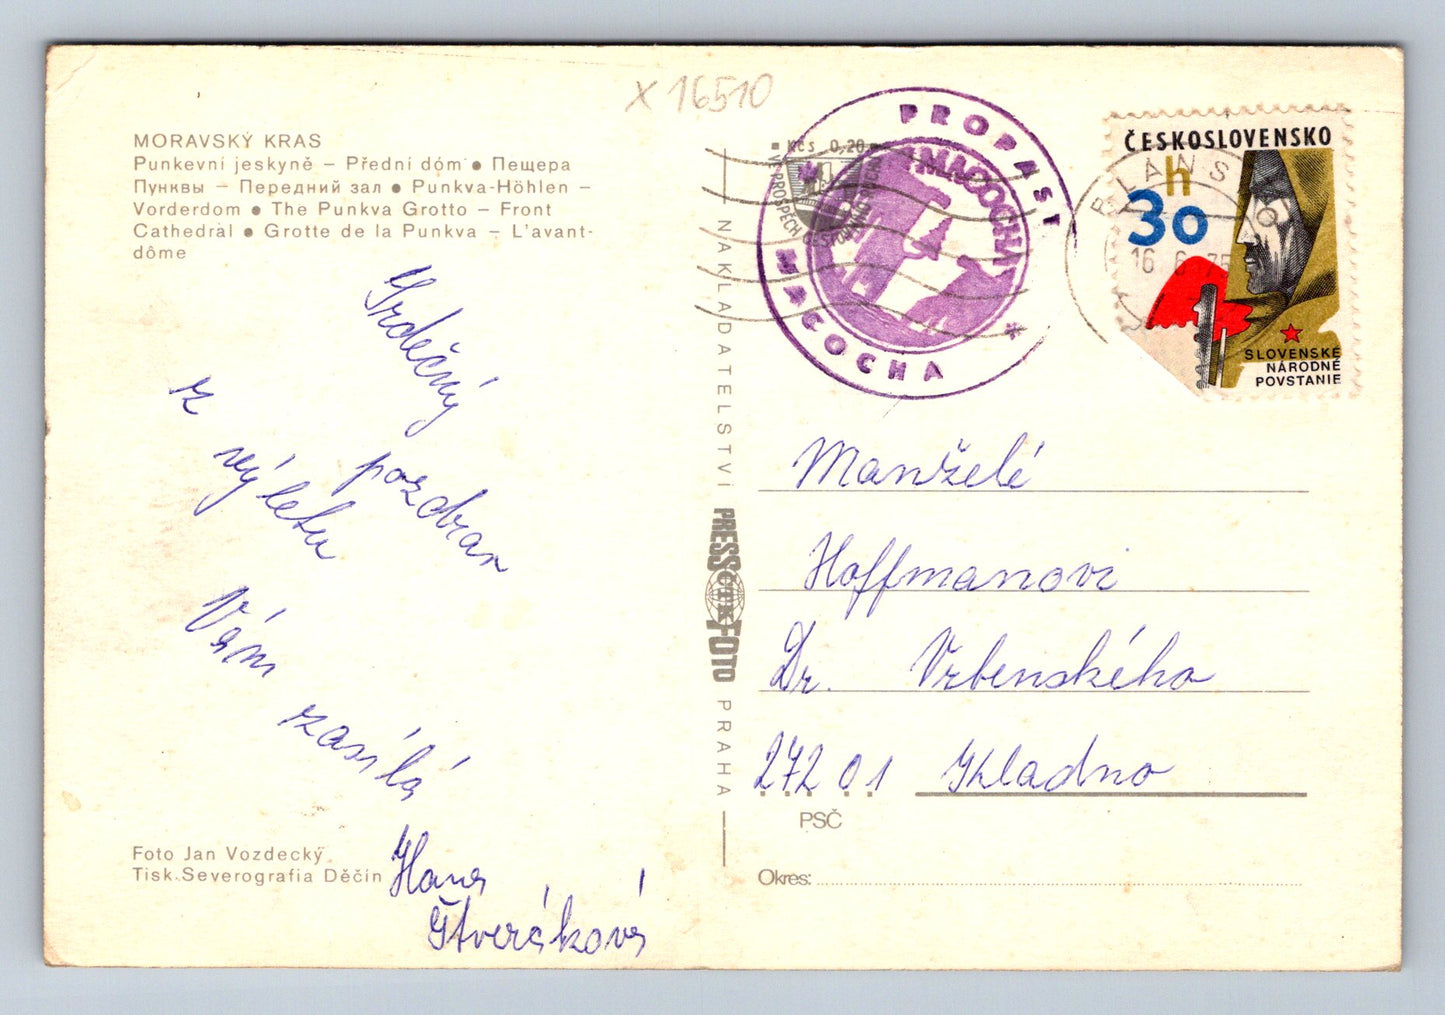 x 16510
MORAVSKÝ KRAS
Punkevní jeskyně – Přední dóm ● Пещера
Пунквы – Передний зал ● Punkva-Höhlen –
Vorderdom ● The Punkva Grotto – Front
Cathedral ● Grotte de la Punkva – L'avant-
dôme
Srdečný
pozdrav
z
výletu
Vám
zasílá
Hana
Štveráková
Foto Jan Vozdecký
Tisk Severografia Děčín
NAKLADATELSTVÍ PRESSFOTO PRAHA
ČTK
Kčs 0,20
VE PROSPĚCH
PROPAST
MACOCHA
MACOCHA
BLANSKO
16 6 75
ČESKOSLOVENSKO
h
30
SLOVENSKÉ
NÁRODNÉ
POVSTANIE
Manželé
Hoffmanovi
Dr. Vrbenského
272 01 Kladno
PSČ
Okres: